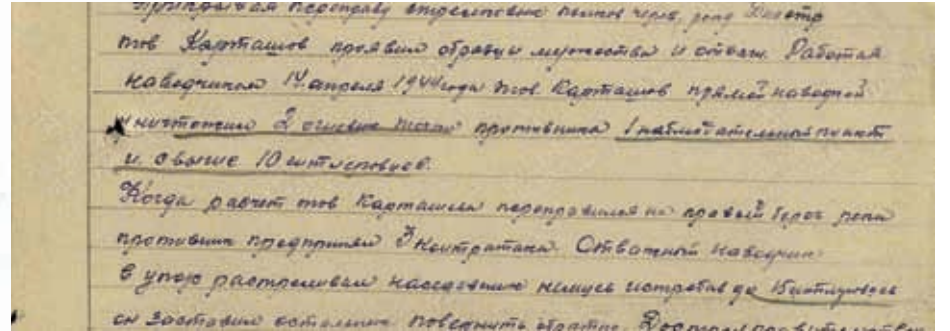 Прикрывая переправу стрелковых полков через реку Днестр
тов Карташов проявил образцы мужества и отваги. Работая
наводчиком 14 апреля 1944 года тов. Карташов прямой наводкой
уничтожил 2 огневые точки противника 1 наблюдательный пункт
и свыше 10 гитлеровцев.
Когда расчет тов Карташова переправился на правый берег реки
противник предпринял 3 контратаки. Отважный наводчик
в упор расстреливал наседавших немцев истребив до 15 гитлеровцев
он заставил остальных повернуть обратно.